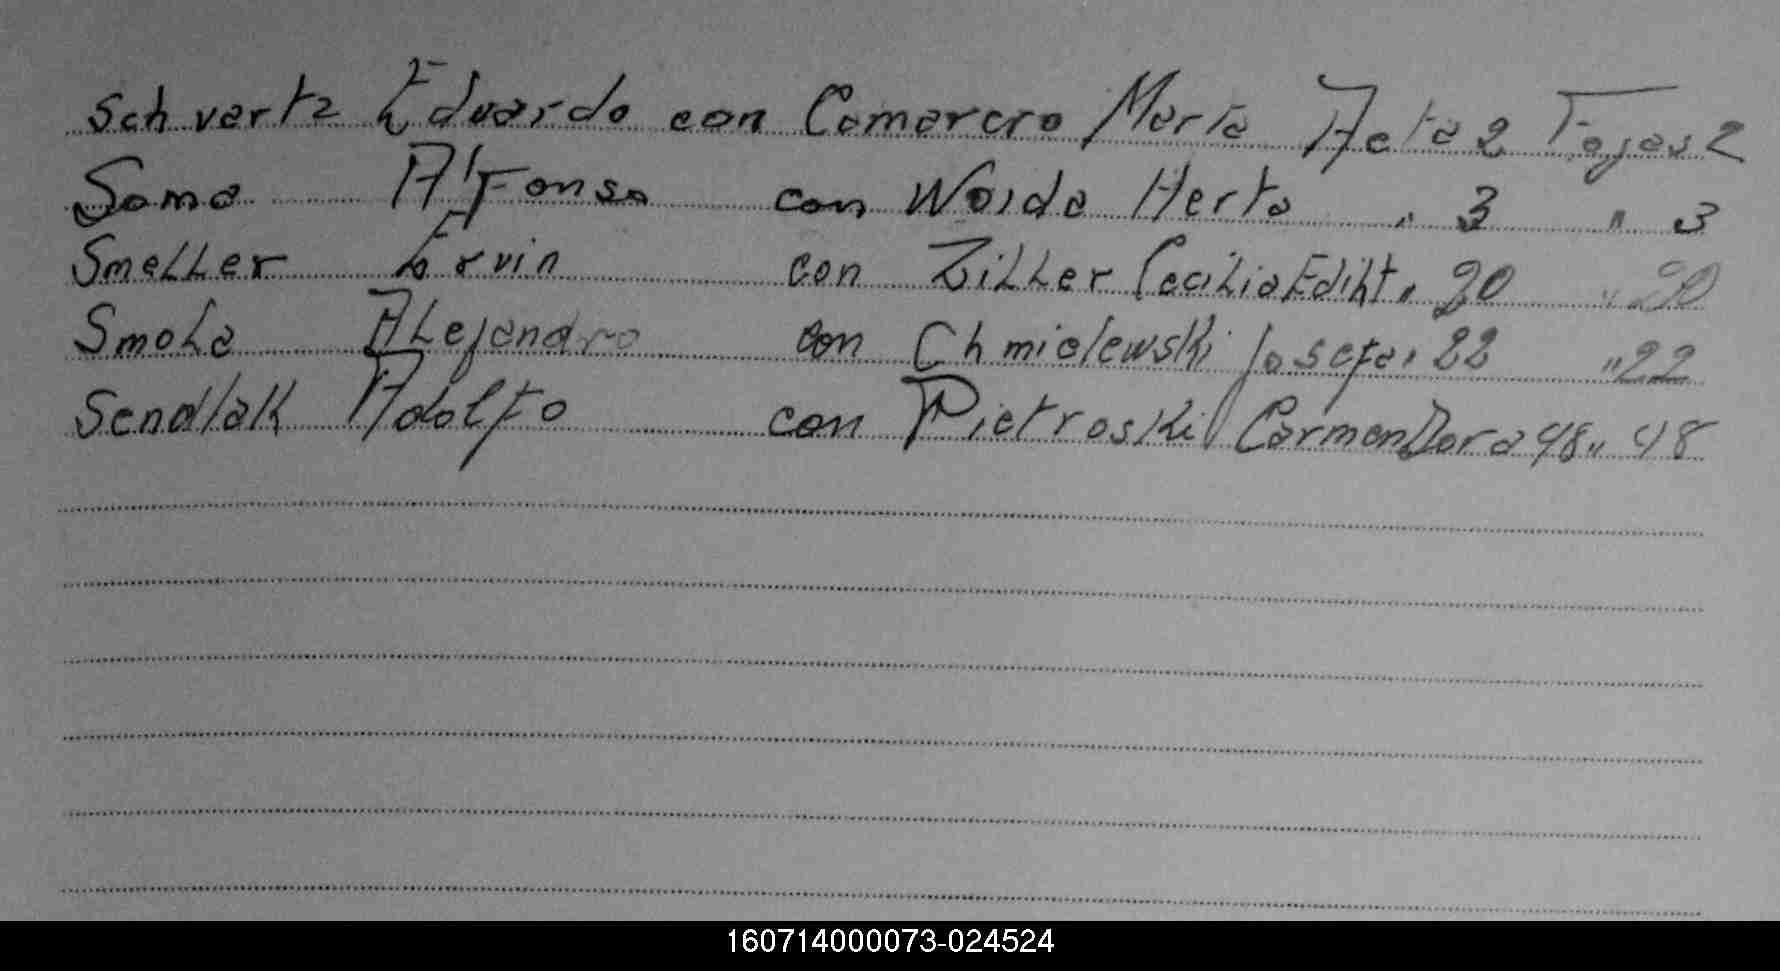 Schvartz Eduardo con Camarcro Marta Acta 2 Fojas 2
Soma Alfonso con Woida Herta " 3 " 3
Smeller Ervin con Ziller Cecilia Ediht " 20 " 20
Smola Alejandro con Chmielewski Josefa " 22 " 22
Sendlak Adolfo con Pietroski Carmen Dora 48 " 48
160714000073-024524